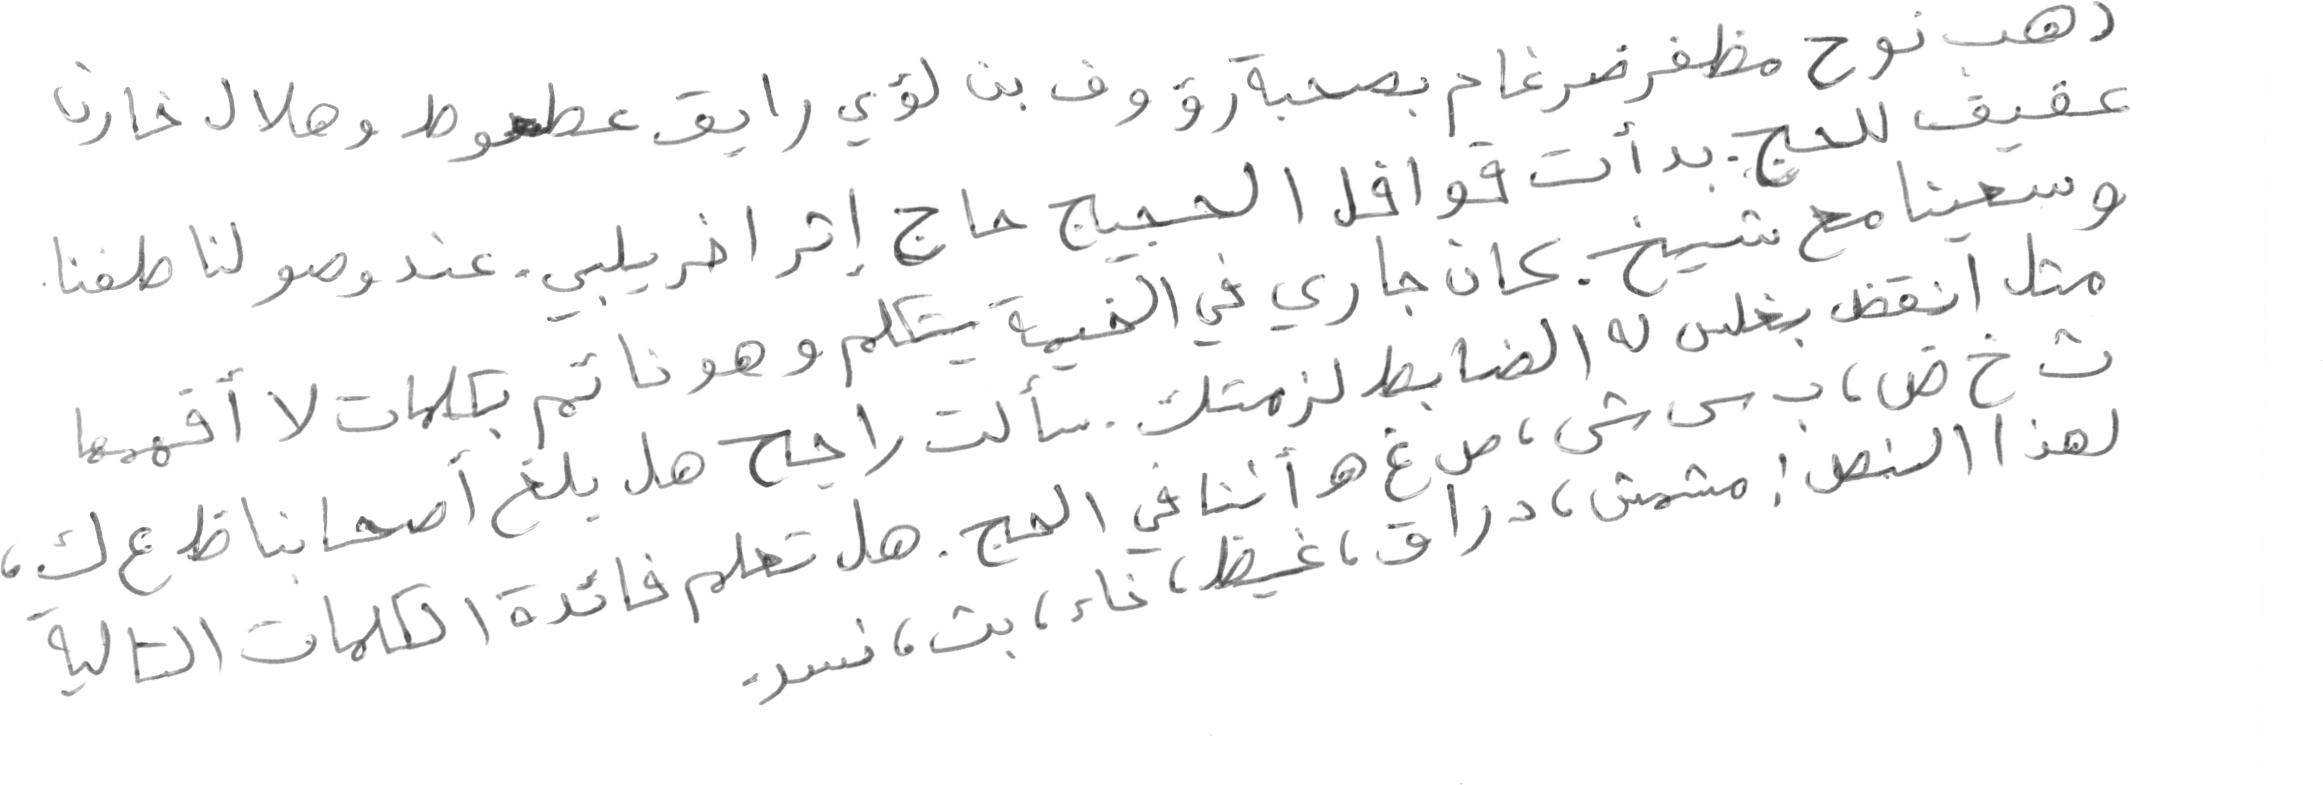 ذهب نوح مظفر ضرغام بصحبة رؤوف بن لؤي رايق عطعوط وهلال خازن
عقيف للحج. بدأت قوافل الحجيج حاج إثر اخر يلبي. عند وصولنا طفنا
وسعينا مع شيخ. كان جاري في الخيمة يتكلم وهو نائم بكلمات لا أفهمها
مثل انقظ بغلس له الضابط لزمتك. سألت راجح هل يلغ أصحابنا ظ ع ك،
ث خ ض، ب س ش، ص غ ه أننا في الحج. هل تعلم فائدة الكلمات التالية
لهذا النص: مشمش، دراق، غيظ، خاء، بث، نسر.